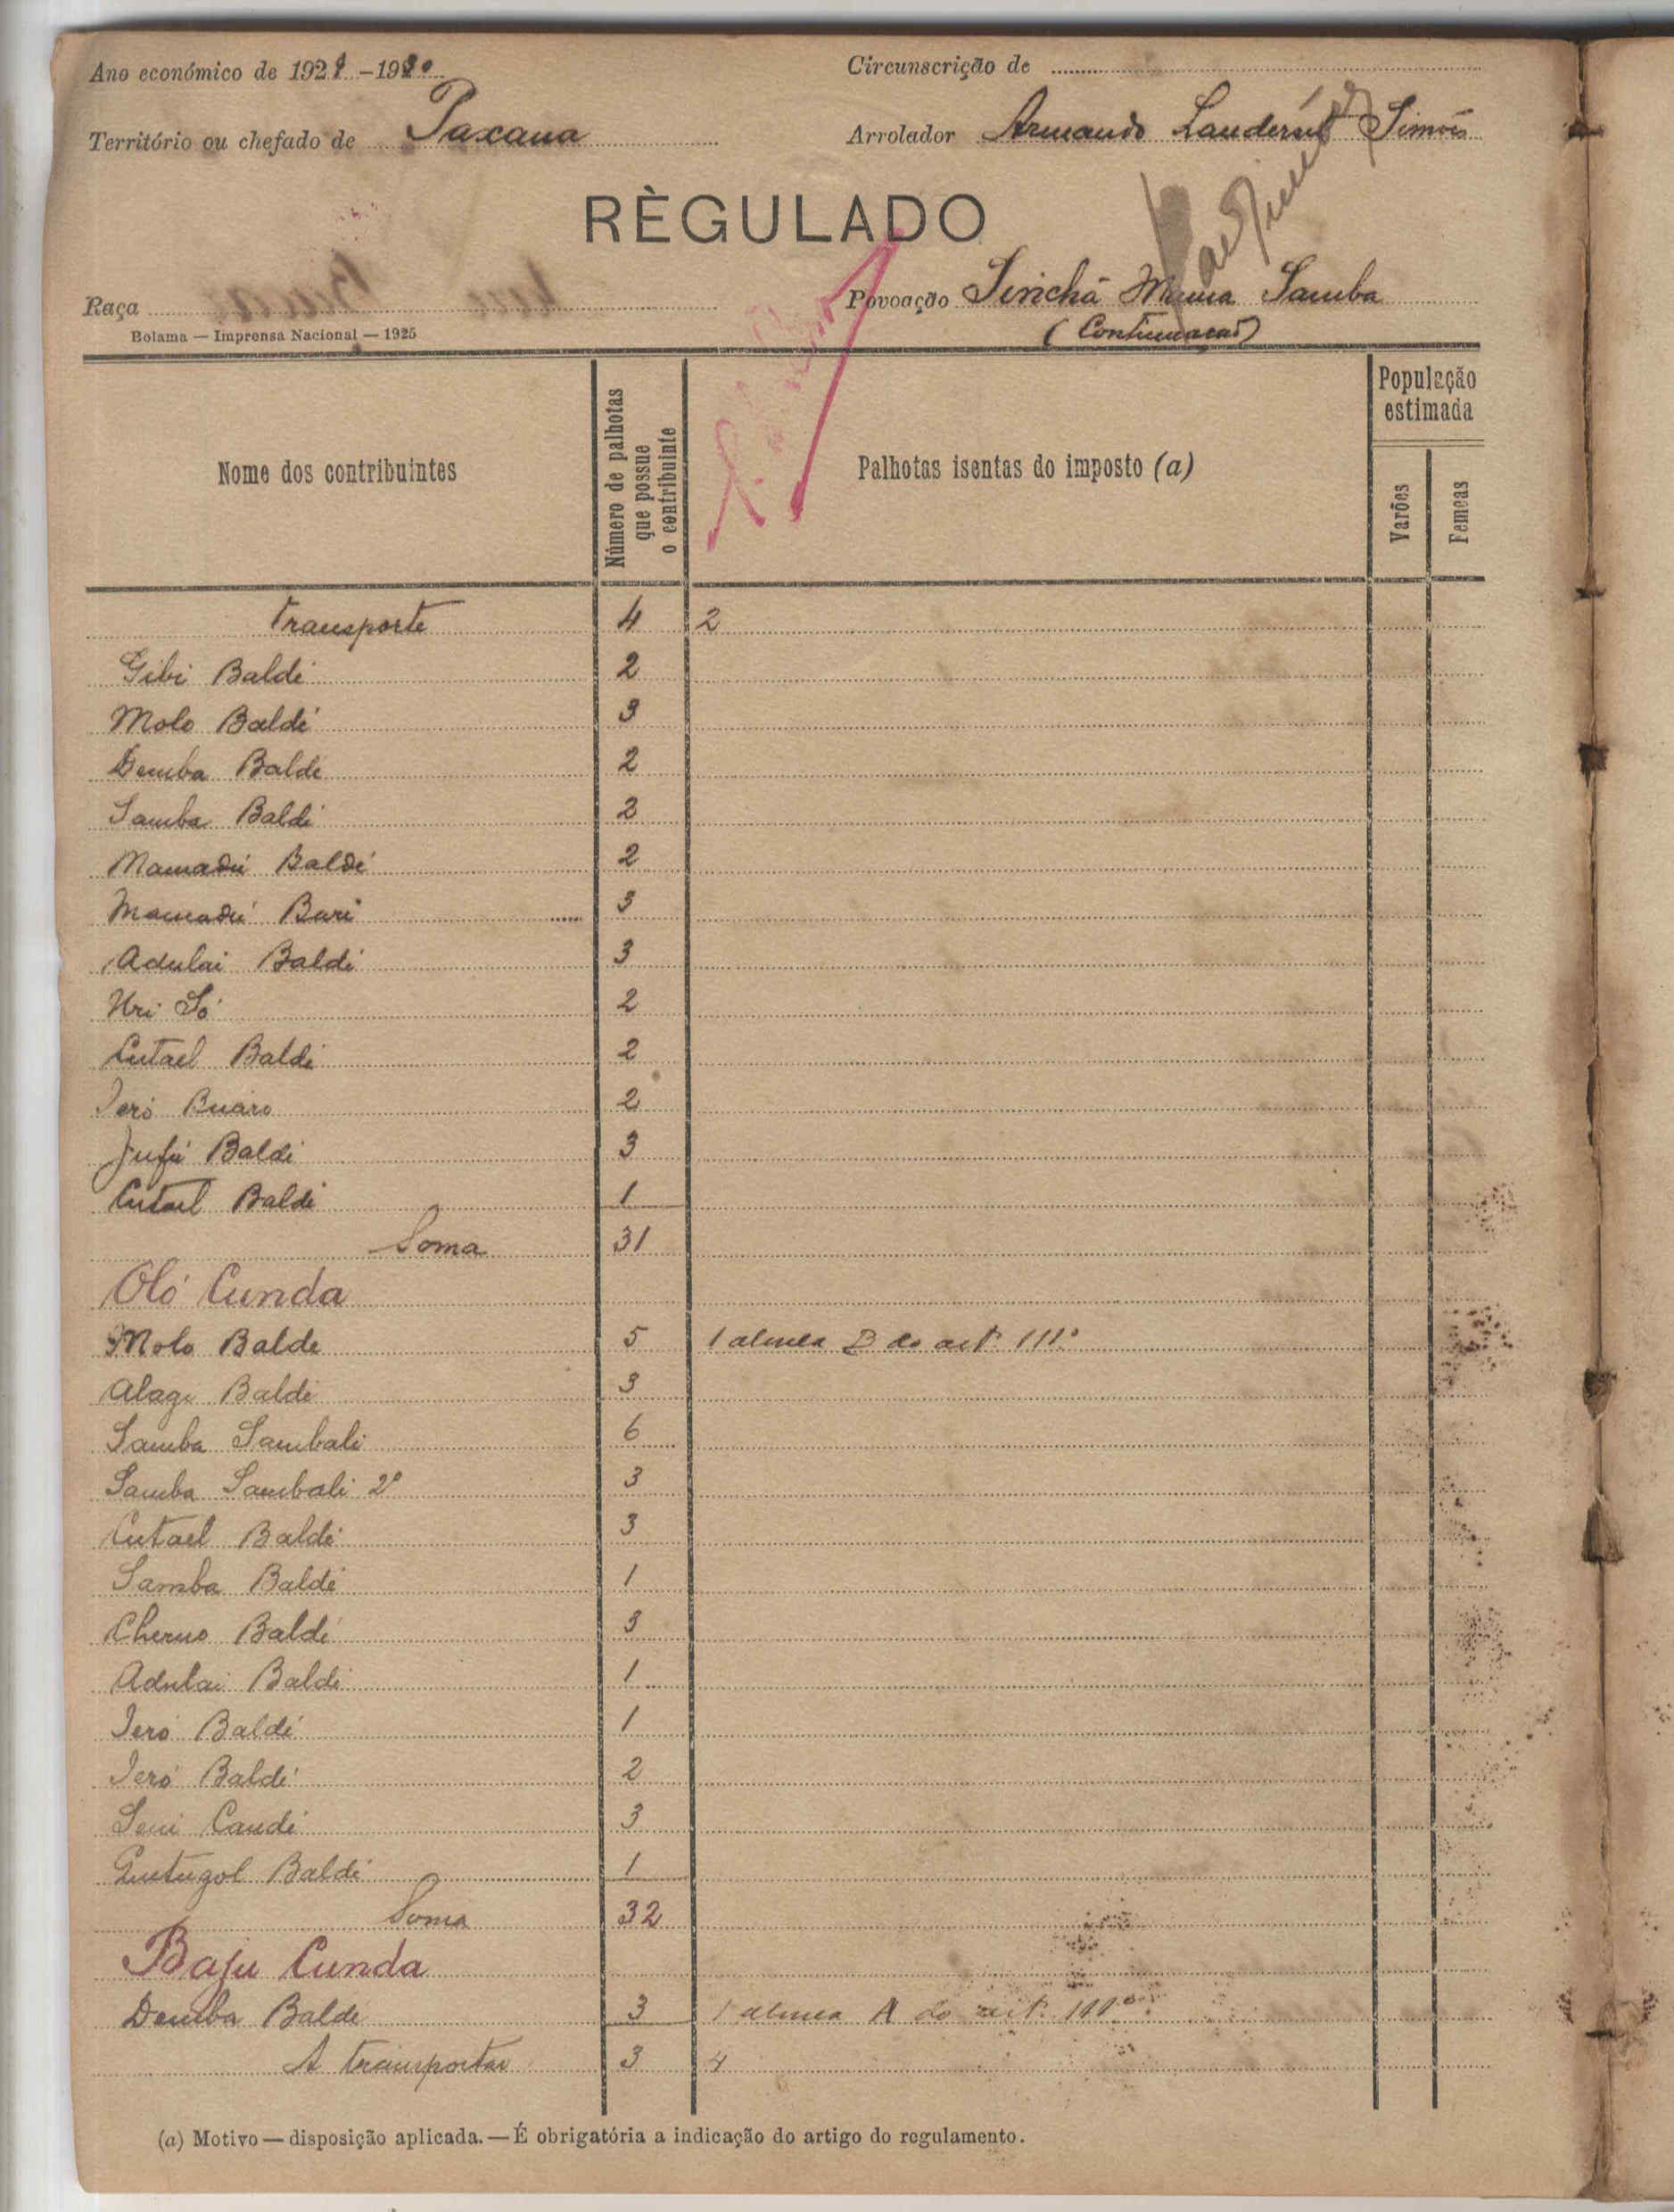 Ano económico de 1929-1930
Circunscrição de
Território ou chefado de Paxana
Arrolador Armando Landerset Simões
RÈGULADO
Raça
Povoação Sinchã Mama Samba
(Continuação)
Bolama — Imprensa Nacional — 1925
Nome dos contribuintes
Número de palhotas que possue o contribuinte
Palhotas isentas do imposto (a)
População estimada
Varões
Femeas
Transporte 4 2
Gibi Baldé 2
Molo Baldé 3
Demba Baldé 2
Samba Baldé 2
Mamadú Baldé 2
Mamadú Bari 3
Adulai Baldé 3
Uri Só 2
Cutael Baldé 2
Ieró Buaro 2
Jufú Baldé 3
Cutael Baldé 1
Soma 31
Oló Cunda
Molo Balde 5 1 alinea B do art.º 111.º
Alage Baldé 3
Samba Sambali 6
Samba Sambali 2º 3
Cutael Baldé 3
Samba Baldé 1
Cherno Baldé 3
Adulai Baldé 1
Ieró Baldé 1
Ieró Baldé 2
Seni Candé 3
Baldé 1
Soma 32
Baju Cunda
Demba Balde 3 1 alinea A do art.º 111.º
A transportar 3 4
(a) Motivo — disposição aplicada. — É obrigatória a indicação do artigo do regulamento.